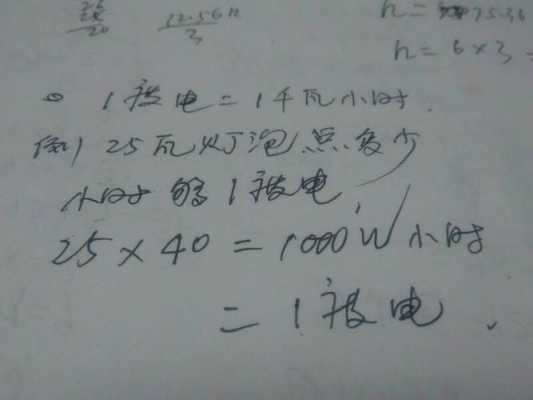 12.56h
3
h=
75.36
h=6×3
1被电=1千瓦小时.
例) 25瓦灯泡点多少
小时够1被电
25×40=1000W小时
=1被电.